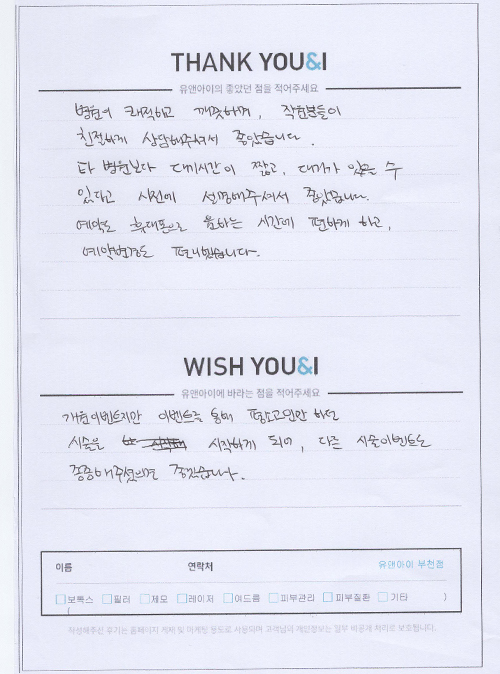 THANK YOU&I
유앤아이의 좋았던 점을 적어주세요
병원이 쾌적하고 깨끗하며, 직원분들이
친절하게 상담해주셔서 좋았습니다.
타 병원보다 대기시간이 짧고, 대기가 있을 수
있다고 사전에 설명해주셔서 좋았습니다.
예약도 휴대폰으로 원하는 시간에 편하게 하고,
예약변경도 편리했습니다.
WISH YOU&I
유앤아이에 바라는 점을 적어주세요
개원이벤트지만 이벤트를 통해 평소 고민만 하던
시술을 시작하게 되어, 다른 시술이벤트도
종종 해주셨으면 좋겠습니다.
이름 연락처 유앤아이 부천점
보톡스 필러 제모 레이저 여드름 피부관리 피부질환 기타 )
(
작성해주신 후기는 홈페이지 게재 및 마케팅 용도로 사용되며 고객님의 개인정보는 일부 비공개 처리로 보호됩니다.